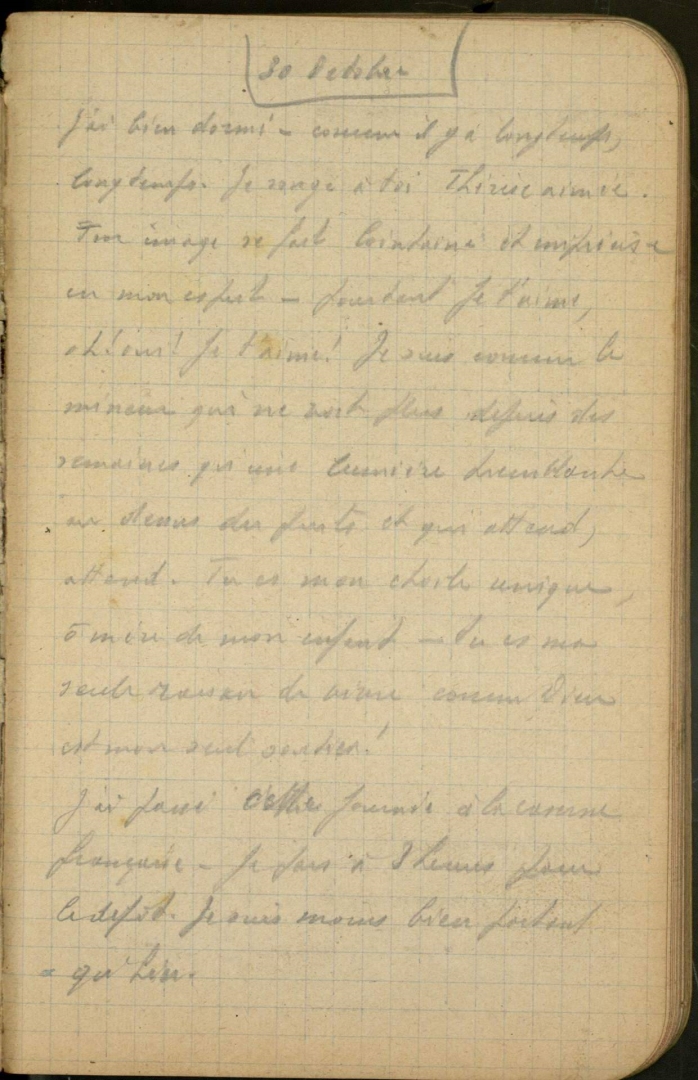 30 Octobre
J'ai bien dormi - comme il y a longtemps,
longtemps. Je songe à toi Thérèse aimée.
Ton image se fait lointaine et imprécise
en mon esprit - pourtant je t'aime,
oh! oui! je t'aime! Je suis comme le
mineur qui ne voit plus depuis des
semaines qu'une lumière tremblante
au dessus du puits et qui attend,
attend. Tu es mon étoile unique,
ô mère de mon enfant - tu es ma
seule raison de vivre comme Dieu
est mon seul soutien!
J'ai passé cette journée à la caserne
française - Je pars à 8 heures pour
le dépôt. Je suis moins bien portant
qu'hier.